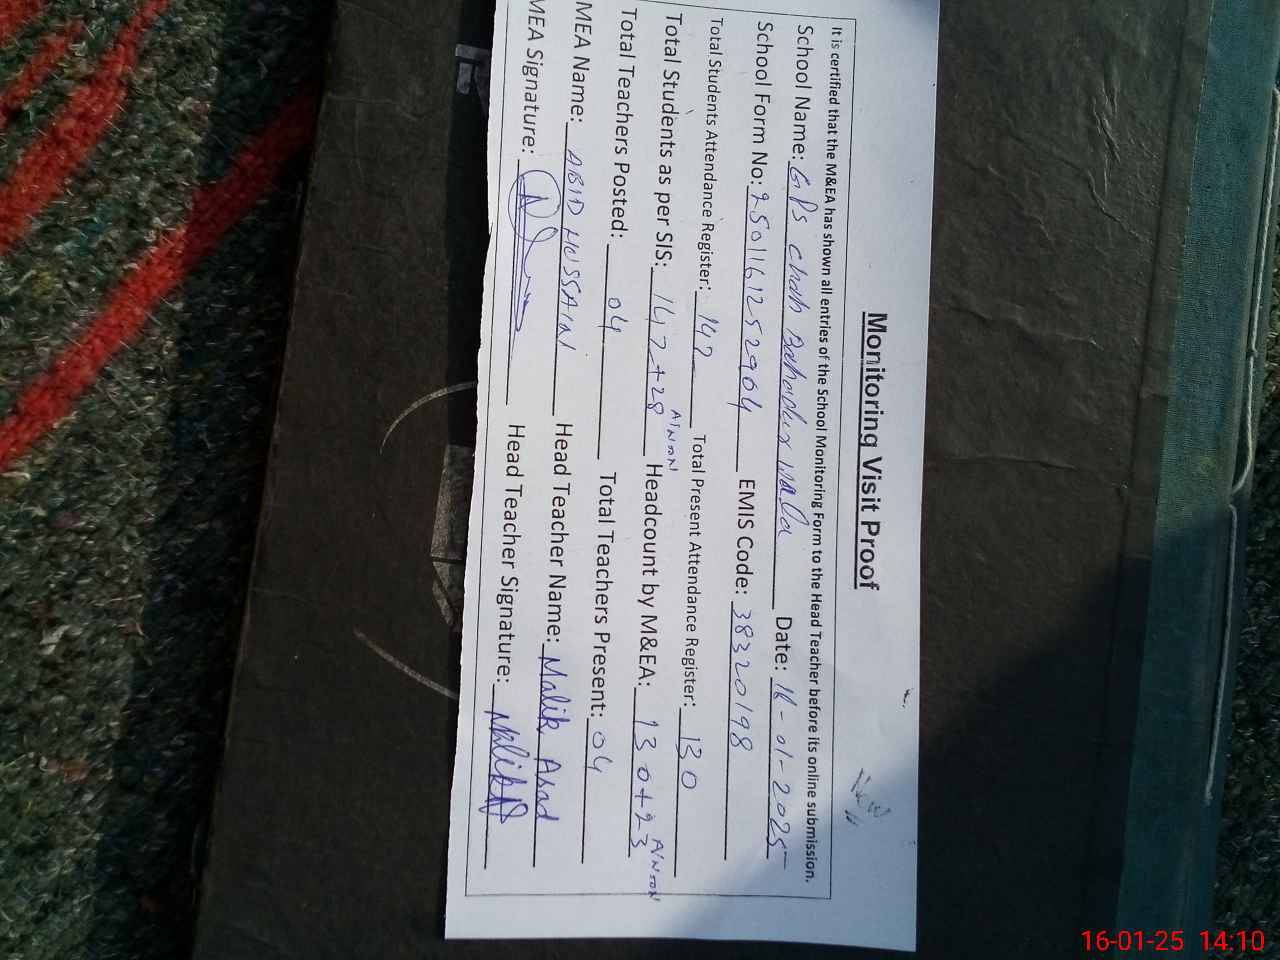 Monitoring Visit Proof
It is certified that the M&EA has shown all entries of the School Monitoring Form to the Head Teacher before its online submission.
School Name: GPS Chah Bahadur Wala Date: 16-01-2025
School Form No: 2501161252904 EMIS Code: 38320198
Total Students Attendance Register: 147 Total Present Attendance Register: 130
Total Students as per SIS: 147+28 A/Noon Headcount by M&EA: 130+23 A/Noon
Total Teachers Posted: 04 Total Teachers Present: 04
MEA Name: ABID HUSSAIN Head Teacher Name: Malik Asad
MEA Signature: Head Teacher Signature:
16-01-25 14:10